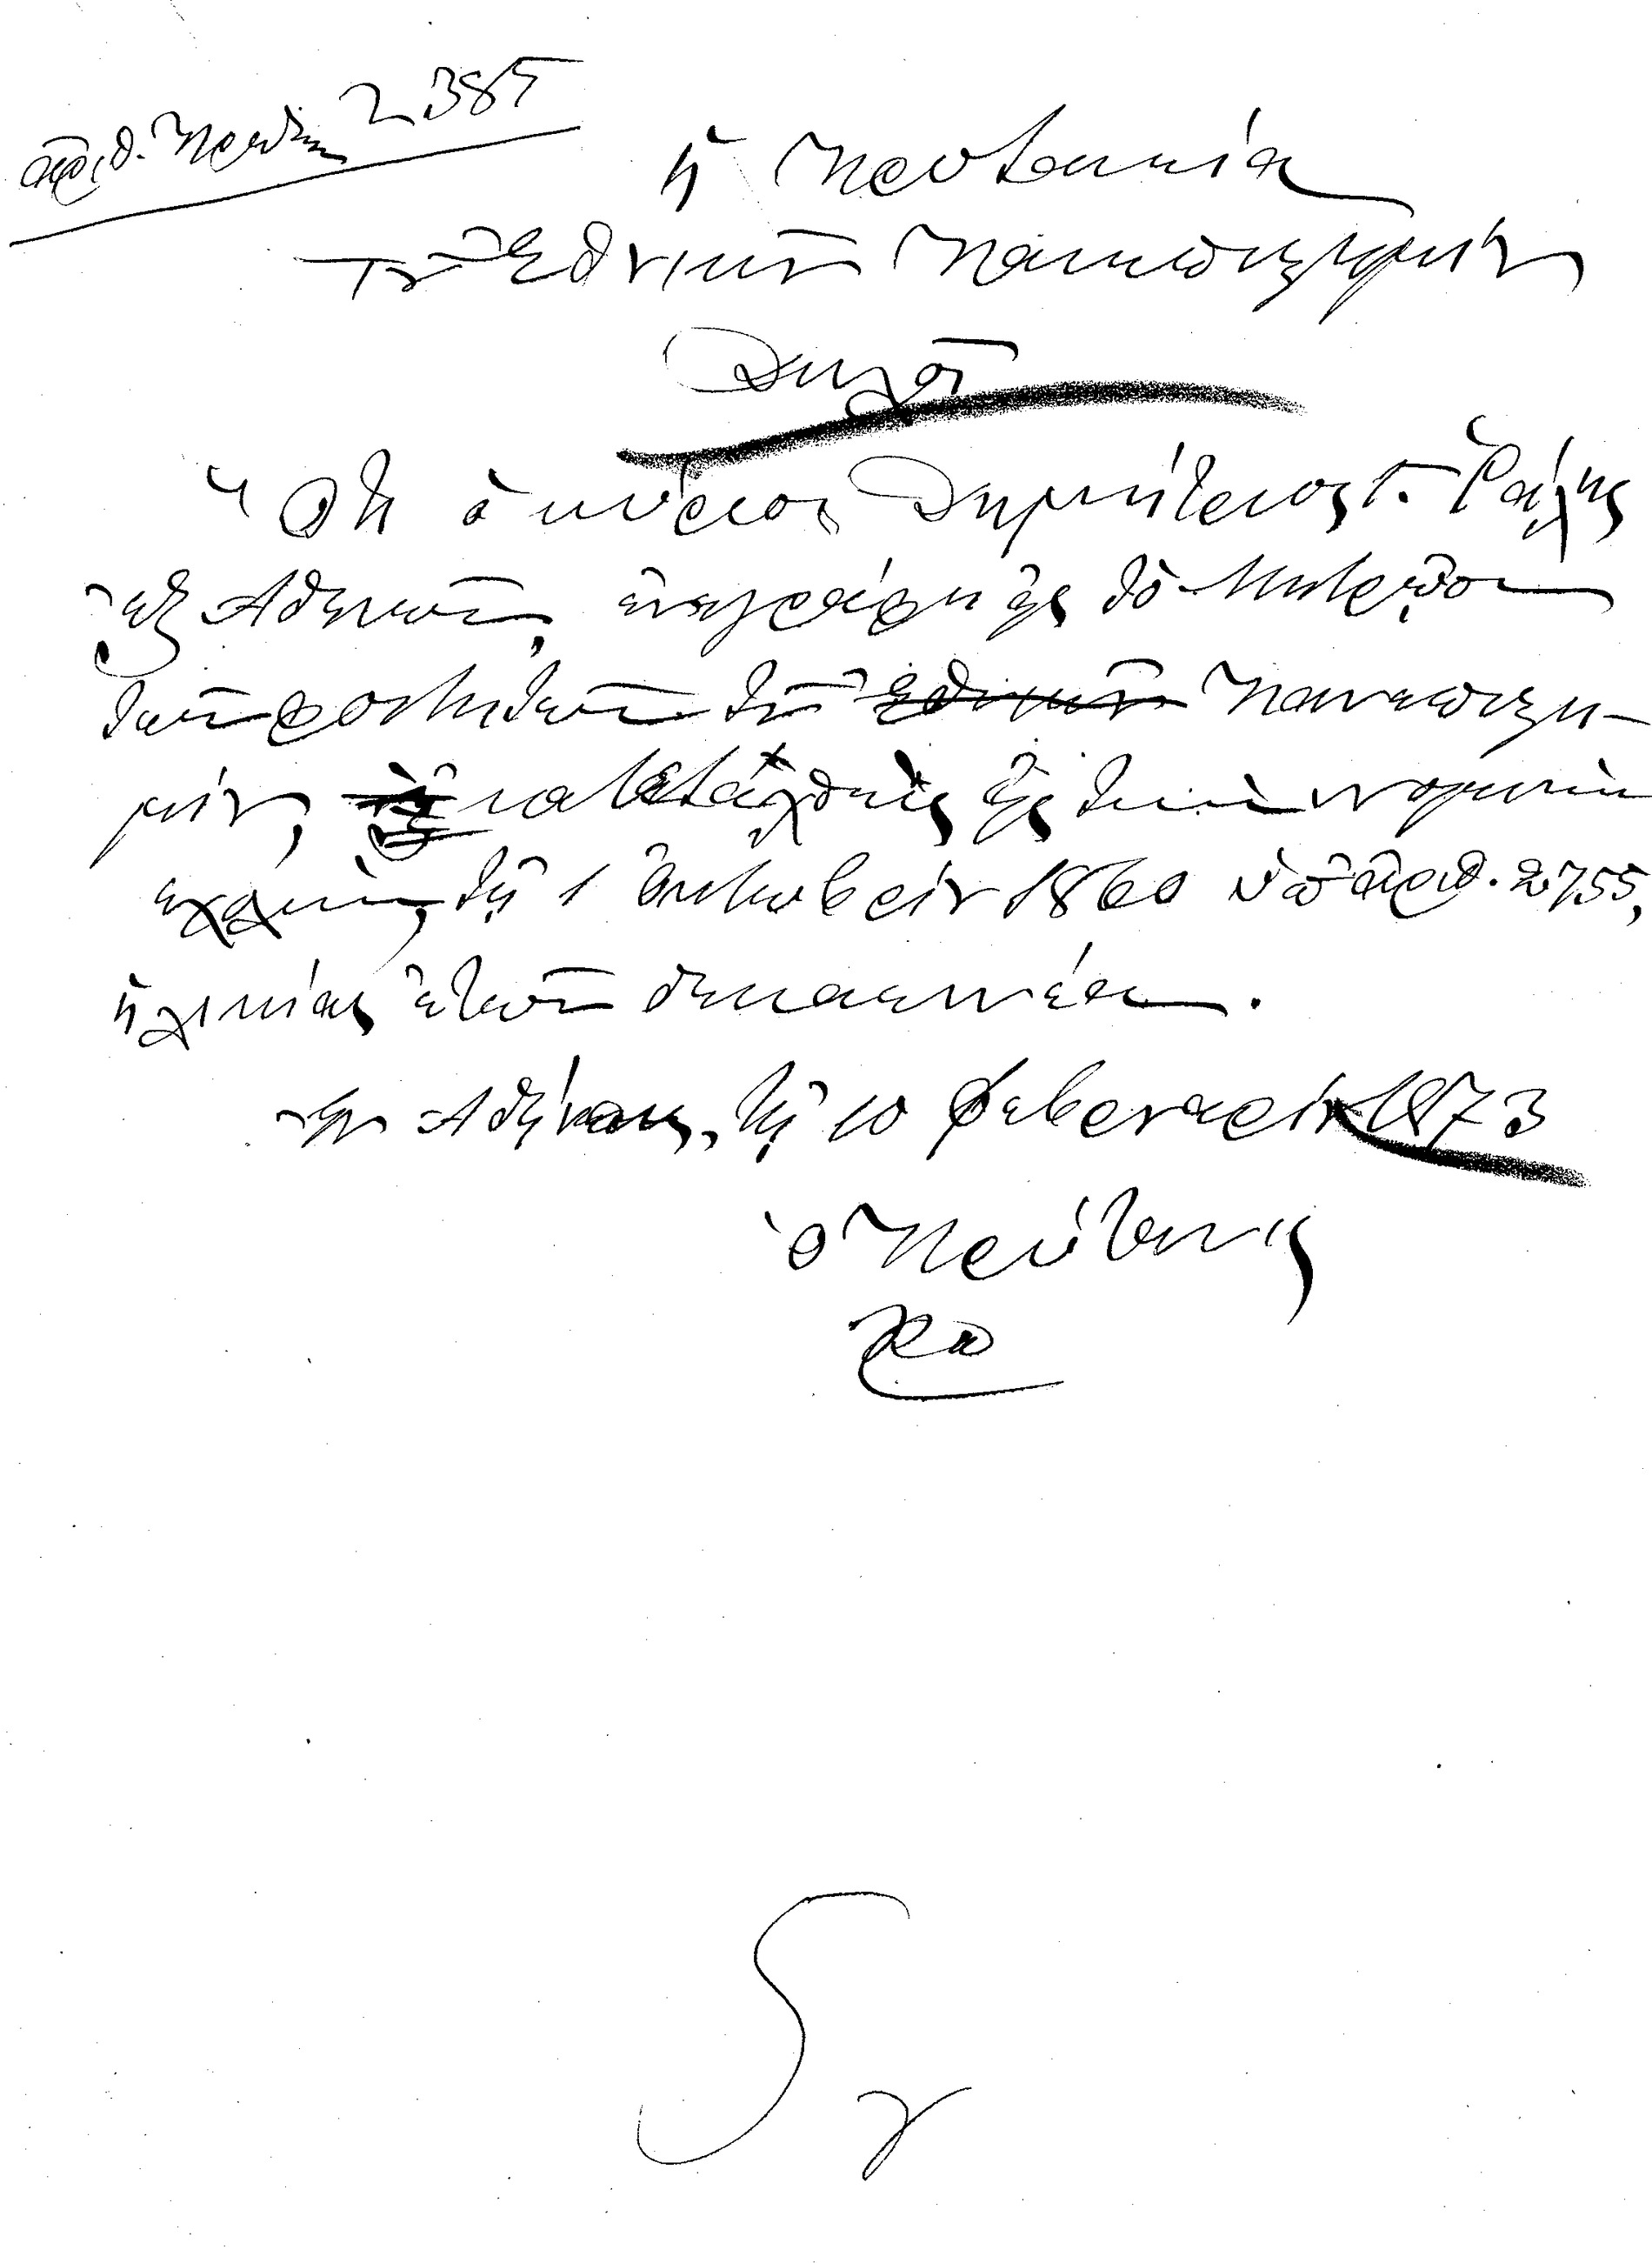 ἀριθ. Πρωτ. 2385
ἡ Πρυτανεία
τοῦ Ἐθνικοῦ Πανεπιστημίου
Δηλοῖ
Ὅτι ὁ κύριος Δημήτριος Γ. Ῥάλης
ἐξ Ἀθηνῶν, ἐνεγράφη εἰς τὸ Μητρῷον
τῶν φοιτητῶν τοῦ Ἐθνικοῦ Πανεπιστη-
μίου, καταταχθεὶς εἰς τὴν νομικὴν
σχολὴν, τῇ 1 Ὀκτωβρίου 1860 ὑπ' ἀριθ. 2755,
ἡλικίας ἐτῶν δεκαεννέα.
Ἐν Ἀθήναις, τῇ 10 Φεβρουαρίου 1873
ὁ Πρύτανις